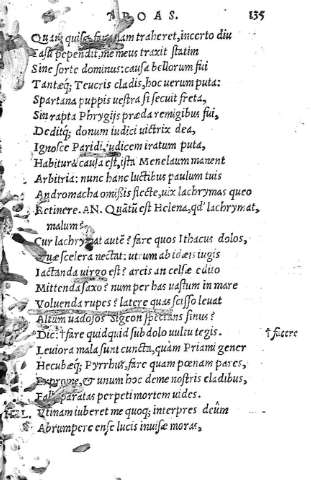 TROAS. 135
Quam quisq; famulam traheret, incerto diu
Casu pependit, me meus traxit statim
Sine sorte dominus: causa bellorum fui
Tantæq; Teucris cladis, hoc uerum puta:
Spartana puppis uestra si secuit freta,
Sin rapta Phrygijs præda remigibus fui,
Deditq; donum iudici uictrix dea,
Ignosce Paridi, iudicem iratum puta,
Habitura causa est, ista Menelaum manent
Arbitria: nunc hanc luctibus paulum tuis
Andromacha omißis flecte, uix lachrymas queo
Retinere. AN. Quãtũ est Helena, qđ lachrymat,
malum?
Cur lachrymat autē? fare quos Ithacus dolos,
Quæ scelera nectat: utrum ab Idæis iugis
Iactanda uirgo est? arcis an celsæ edito
Mittenda saxo? num per has uastum in mare
Voluenda rupes? latere quas scisso leuat
Altum uadosos Sigeon spectans sinus?
Dic: † fare quidquid subdolo uultu tegis. † facere
Leuiora mala sunt cuncta, quàm Priami gener
Hecubæq; Pyrrhus, fare quam pœnam pares,
Exprome, & unum hoc deme nostris cladibus,
Falli paratas perpeti mortem uides.
HEL. Vtinam iuberet me quoq; interpres deûm
Abrumpere ense lucis inuisæ moras,